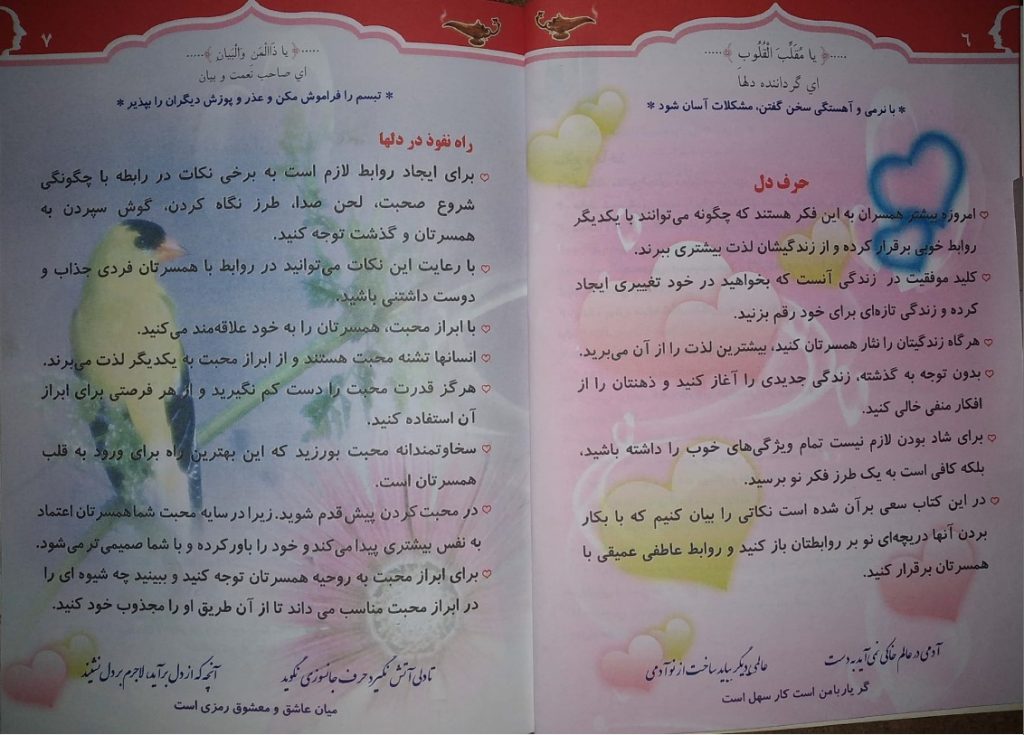 ٦
.....﴿ یا مُقَلِّبَ الْقُلُوبِ ﴾.....
اي گرداننده دلها
* با نرمی و آهستگی سخن گفتن، مشکلات آسان شود *
حرف دل
امروزه بیشتر همسران به این فکر هستند که چگونه می‌توانند با یکدیگر
روابط خوبی برقرار کرده و از زندگیشان لذت بیشتری ببرند.
کلید موفقیت در زندگی آنست که بخواهید در خود تغییری ایجاد
کرده و زندگی تازه‌ای برای خود رقم بزنید.
هر گاه زندگیتان را نثار همسرتان کنید، بیشترین لذت را از آن می‌برید.
بدون توجه به گذشته، زندگی جدیدی را آغاز کنید و ذهنتان را از
افکار منفی خالی کنید.
برای شاد بودن لازم نیست تمام ویژگی‌های خوب را داشته باشید،
بلکه کافی است به یک طرز فکر نو برسید.
در این کتاب سعی برآن شده است نکاتی را بیان کنیم که با بکار
بردن آنها دریچه‌ای نو بر روابطتان باز کنید و روابط عاطفی عمیقی با
همسرتان برقرار کنید.
آدمی در عالم خاکی نمی آید به دست
عالمی دیگر بباید ساخت از نو آدمی
گر یار بامن است کار سهل است
٧
.....﴿ یا ذَاالْمَنِ وَالْبَیانِ ﴾.....
اي صاحب نعمت و بیان
* تبسم را فراموش مکن و عذر و پوزش دیگران را بپذیر *
راه نفوذ در دلها
برای ایجاد روابط لازم است به برخی نکات در رابطه با چگونگی
شروع صحبت، لحن صدا، طرز نگاه کردن، گوش سپردن به
همسرتان و گذشت توجه کنید.
با رعایت این نکات می‌توانید در روابط با همسرتان فردی جذاب و
دوست داشتنی باشید.
با ابراز محبت، همسرتان را به خود علاقه‌مند می‌کنید.
انسانها تشنه محبت هستند و از ابراز محبت به یکدیگر لذت می‌برند.
هرگز قدرت محبت را دست کم نگیرید و از هر فرصتی برای ابراز
آن استفاده کنید.
سخاوتمندانه محبت بورزید که این بهترین راه برای ورود به قلب
همسرتان است.
در محبت کردن پیش قدم شوید. زیرا در سایه محبت شما همسرتان اعتماد
به نفس بیشتری پیدا می‌کند و خود را باور کرده و با شما صمیمی‌تر می‌شود.
برای ابراز محبت به روحیه همسرتان توجه کنید و ببینید چه شیوه ای را
در ابراز محبت مناسب می داند تا از آن طریق او را مجذوب خود کنید.
تا دلی آتش نگیرد حرف جانسوزی نگوید
آنچه که از دل برآید، لاجرم بر دل نشیند
میان عاشق و معشوق رمزی است